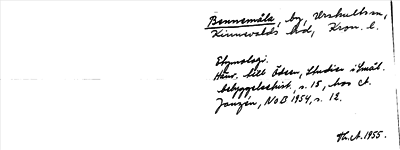 Bennemåla, by, Urshults sn,
Kinnevalds hd, Kron. l.
Etymologi.
Hänv. till Ödeen, Studier i Smål.
bebyggelsehist., s. 15, hos A.
Janzén, NoB 1954, s. 12.
A. 1955.